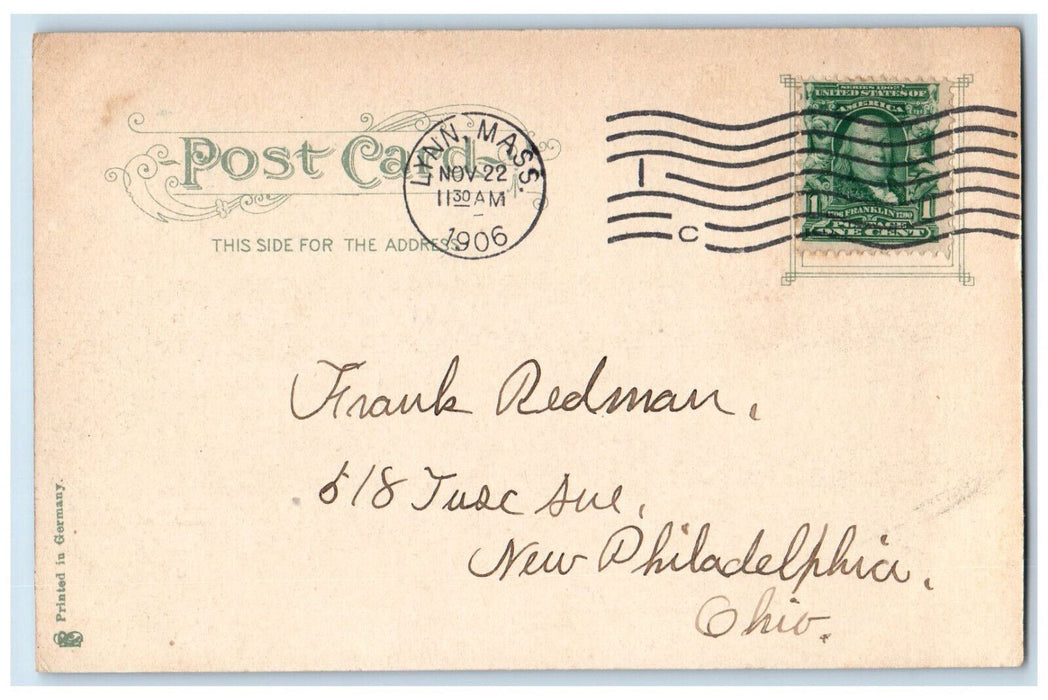 POST CARD
THIS SIDE FOR THE ADDRESS.
LYNN, MASS.
NOV 22
11 30 AM
1906
1
C
SERIES 1902
UNITED STATES OF
AMERICA
1706 FRANKLIN 1790
1 1
POSTAGE
ONE CENT
Frank Redman,
518 Tusc Ave,
New Philadelphia,
Ohio.
Printed in Germany.